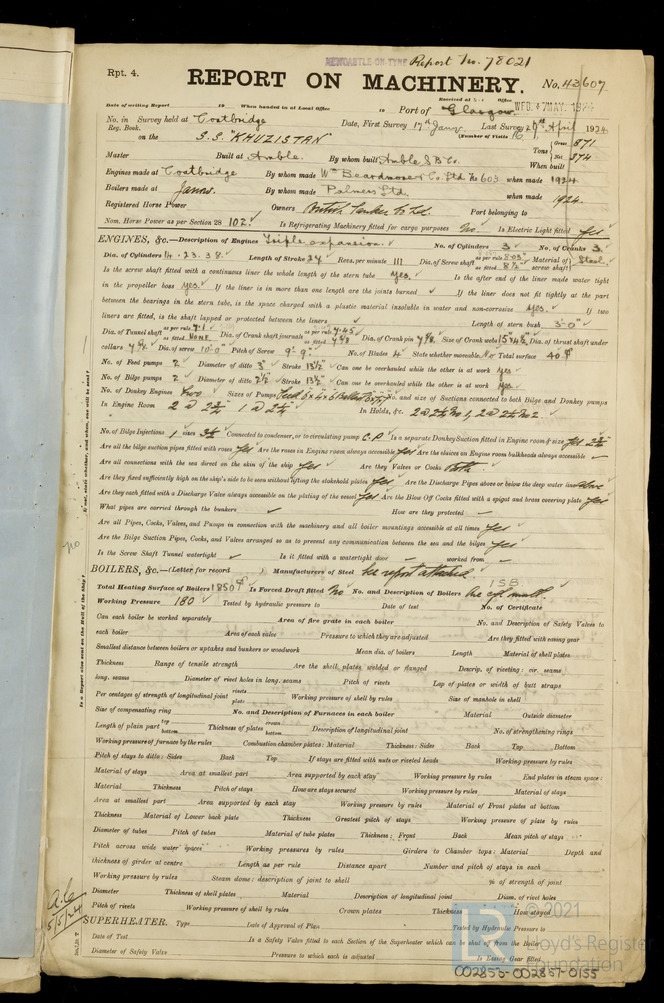 NEWCASTLE-ON-TYNE Report No. 78021
Rpt. 4.
REPORT ON MACHINERY. No. 43607
Date of writing Report 19 When handed in at Local Office 19 Port of Glasgow Received at Office WED. 7 MAY. 1924
No. in Reg. Book. Survey held at Coatbridge Date, First Survey 17th Jany. Last Survey 29th April 1924
(Number of Visits 16)
on the S.S. "KHUZISTAN" Tons Gross 871 Net 374
Master Built at Amble. By whom built Amble S.B. Co. When built
Engines made at Coatbridge By whom made Wm Beardmore & Co. Ltd No 603 when made 1924
Boilers made at Jarrow. By whom made Palmers Ltd. when made 1924.
Registered Horse Power Owners British Tanker Co Ltd. Port belonging to
Nom. Horse Power as per Section 28 102. Is Refrigerating Machinery fitted for cargo purposes No. Is Electric Light fitted Yes
ENGINES, &c.—Description of Engines Triple expansion. No. of Cylinders 3 No. of Cranks 3.
Dia. of Cylinders 14. 23. 38. Length of Stroke 24 Revs. per minute 111 Dia. of Screw shaft as per rule 8.03" as fitted 8½" Material of screw shaft Steel.
Is the screw shaft fitted with a continuous liner the whole length of the stern tube Yes. Is the after end of the liner made water tight
in the propeller boss Yes. If the liner is in more than one length are the joints burned If the liner does not fit tightly at the part
between the bearings in the stern tube, is the space charged with a plastic material insoluble in water and non-corrosive Yes. If two
liners are fitted, is the shaft lapped or protected between the liners Length of stern bush 3'-0"
Dia. of Tunnel shaft as per rule 7.1 as fitted NONE Dia. of Crank shaft journals as per rule 7.45 as fitted 7⅝ Dia. of Crank pin 7⅝ Size of Crank webs 15"×4½ Dia. of thrust shaft under
collars Dia. of screw 10'-0" Pitch of Screw 9'-9". No. of Blades 4 State whether moveable No Total surface 40
No. of Feed pumps 2 Diameter of ditto 3" Stroke 13½" Can one be overhauled while the other is at work Yes
No. of Bilge pumps 2 Diameter of ditto 2½ Stroke 13½" Can one be overhauled while the other is at work Yes
No. of Donkey Engines Two Sizes of Pumps No. and size of Suctions connected to both Bilge and Donkey pumps
In Engine Room 2 @ 2½" 1 @ 2½" In Holds, &c. 2 @ 2½" No 1, 2 @ 2½" No 2
No. of Bilge Injections 1 sizes 3½ Connected to condenser, or to circulating pump C.P. Is a separate Donkey Suction fitted in Engine room & size Yes 2½"
Are all the bilge suction pipes fitted with roses Yes Are the roses in Engine room always accessible Yes Are the sluices on Engine room bulkheads always accessible —
Are all connections with the sea direct on the skin of the ship Yes Are they Valves or Cocks Both
Are they fixed sufficiently high on the ship's side to be seen without lifting the stokehold plates Yes Are the Discharge Pipes above or below the deep water line above
Are they each fitted with a Discharge Valve always accessible on the plating of the vessel Yes Are the Blow Off Cocks fitted with a spigot and brass covering plate Yes
What pipes are carried through the bunkers How are they protected —
Are all Pipes, Cocks, Valves, and Pumps in connection with the machinery and all boiler mountings accessible at all times Yes
Are the Bilge Suction Pipes, Cocks, and Valves arranged so as to prevent any communication between the sea and the bilges Yes
Is the Screw Shaft Tunnel watertight Is it fitted with a watertight door — worked from —
BOILERS, &c.—(Letter for record ) Manufacturers of Steel See report attached.
Total Heating Surface of Boilers 1850 Is Forced Draft fitted No No. and Description of Boilers 1SB
Working Pressure 180 Tested by hydraulic pressure to Date of test No. of Certificate
Can each boiler be worked separately Area of fire grate in each boiler No. and Description of Safety Valves to
each boiler Area of each valve Pressure to which they are adjusted Are they fitted with easing gear
Smallest distance between boilers or uptakes and bunkers or woodwork Mean dia. of boilers Length Material of shell plates
Thickness Range of tensile strength Are the shell plates welded or flanged Descrip. of riveting: cir. seams
long. seams Diameter of rivet holes in long. seams Pitch of rivets Lap of plates or width of butt straps
Per centages of strength of longitudinal joint rivets plate Working pressure of shell by rules Size of manhole in shell
Size of compensating ring No. and Description of Furnaces in each boiler Material Outside diameter
Length of plain part top bottom Thickness of plates crown bottom Description of longitudinal joint No. of strengthening rings
Working pressure of furnace by the rules Combustion chamber plates: Material Thickness: Sides Back Top Bottom
Pitch of stays to ditto: Sides Back Top If stays are fitted with nuts or riveted heads Working pressure by rules
Material of stays Area at smallest part Area supported by each stay Working pressure by rules End plates in steam space:
Material Thickness Pitch of stays How are stays secured Working pressure by rules Material of stays
Area at smallest part Area supported by each stay Working pressure by rules Material of Front plates at bottom
Thickness Material of Lower back plate Thickness Greatest pitch of stays Working pressure of plate by rules
Diameter of tubes Pitch of tubes Material of tube plates Thickness: Front Back Mean pitch of stays
Pitch across wide water spaces Working pressures by rules Girders to Chamber tops: Material Depth and
thickness of girder at centre Length as per rule Distance apart Number and pitch of stays in each
Working pressure by rules Steam dome: description of joint to shell % of strength of joint
Diameter Thickness of shell plates Material Description of longitudinal joint Diam. of rivet holes
Pitch of rivets Working pressure of shell by rules Crown plates Thickness How stayed
SUPERHEATER. Type Date of Approval of Plan Tested by Hydraulic Pressure to
Date of Test Is a Safety Valve fitted to each Section of the Superheater which can be shut off from the Boiler
Diameter of Safety Valve Pressure to which each is adjusted Is Easing Gear fitted
5/5/24
no
© 2021
Lloyd's Register
Foundation
002853-002857-0155